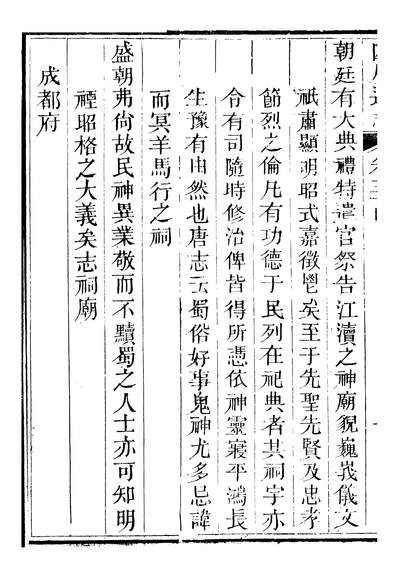 朝廷有大典禮特遣官祭告江瀆之神廟貌巍峩儀文
祇肅顯明昭式嘉徵鬯矣至于先聖先賢及忠孝
節烈之倫凡有功德于民列在祀典者其祠宇亦
令有司隨時修治俾皆得所憑依神靈寢平鴻長
生豫有由然也唐志云蜀俗好事鬼神尤多忌諱
而冥羊馬行之祠
盛朝弗尙故民神異業敬而不黷蜀之人士亦可知明
禋昭格之大義矣志祠廟
成都府